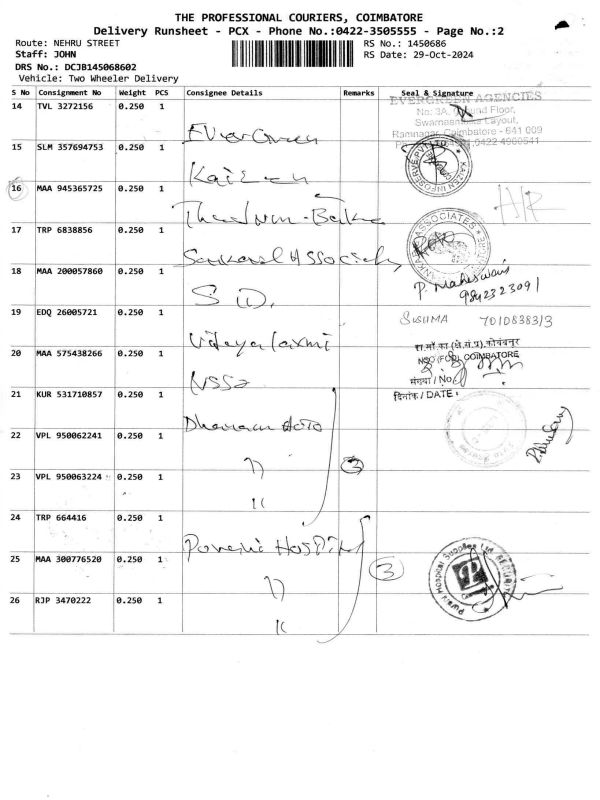 THE PROFESSIONAL COURIERS, COIMBATORE
Delivery Runsheet - PCX - Phone No.:0422-3505555 - Page No.:2
Route: NEHRU STREET
RS No.: 1450686
Staff: JOHN
RS Date: 29-Oct-2024
DRS No.: DCJB145068602
Vehicle: Two Wheeler Delivery
S No Consignment No Weight PCS Consignee Details Remarks Seal & Signature
14 TVL 3272156 0.250 1 Evergreen
EVERGREEN AGENCIES
No: 3A, Ground Floor,
Layout,
Ramnagar, Coimbatore - 641 009
15 SLM 357694753 0.250 1 Kaizen
16 MAA 945365725 0.250 1
17 TRP 6838856 0.250 1 Associates
18 MAA 200057860 0.250 1 S D.
P. Maheswari
9842323091
19 EDQ 26005721 0.250 1 Vijayalaxmi SUSHMA 701083813
20 MAA 575438266 0.250 1 NSSO
रा.मों.का (क्षे.सं.प्र).कोयंबतूर
NSO (FOD) COIMBATORE
संख्या / No
दिनांक / DATE :
21 KUR 531710857 0.250 1 Auto
22 VPL 950062241 0.250 1 " 3
23 VPL 950063224 0.250 1 "
24 TRP 664416 0.250 1 Hospital
25 MAA 300776520 0.250 1 " 3
26 RJP 3470222 0.250 1 "